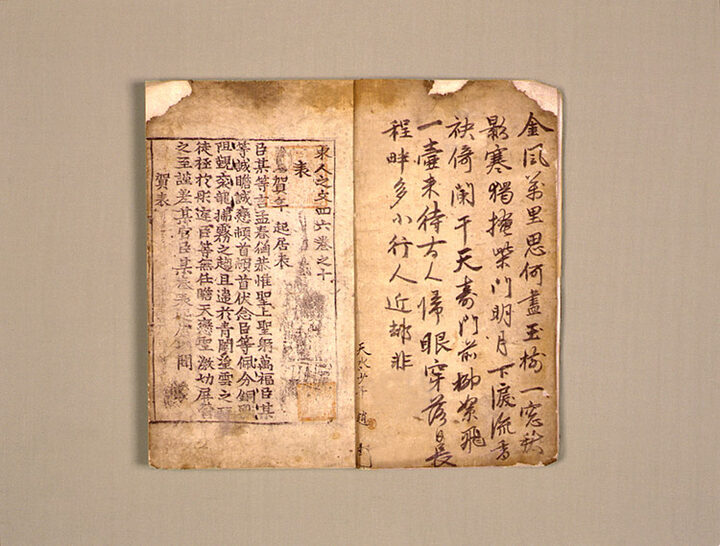 金風萬里思何盡玉樹一窓秋
影寒獨掩柴門明月下淚流香
袂倚闌干天壽門前柳絮飛
一壺來待古人歸眼穿落日長
程畔多小行人近却非
天水少年 趙
東人之文四六卷之十
表
賀年起居表
臣某等言孟春猶恭惟聖上聖躬萬福臣某
等誠瞻誠戀頓首頓首伏念臣等佩分銅
阻覲袞龍捕霧之趨且違於青閣垂雲之
徒極於彤庭臣等無任瞻天戀聖激切屏營
之至謹差某官臣某奉表起居以聞
賀表